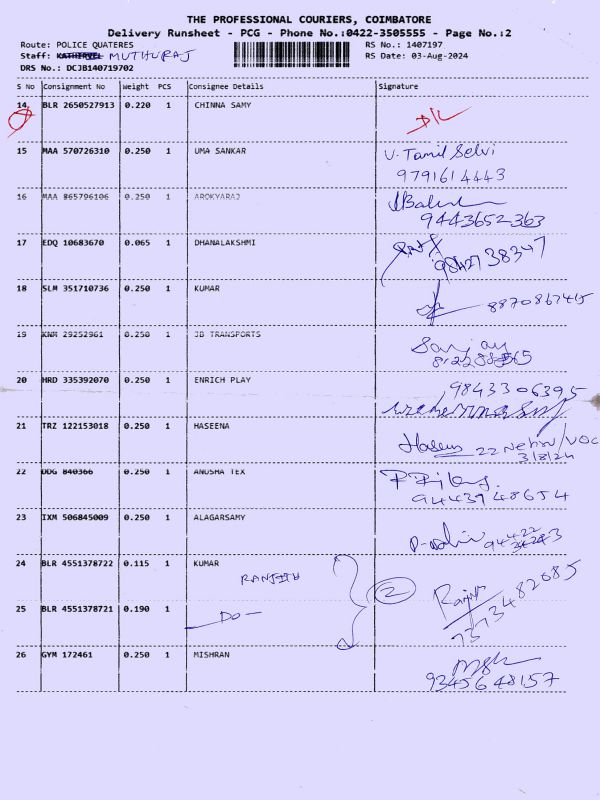 THE PROFESSIONAL COURIERS, COIMBATORE
Delivery Runsheet - PCG - Phone No.:0422-3505555 - Page No.:2
Route: POLICE QUATERES RS No.: 1407197
Staff: KATHIRVEL MUTHURAJ RS Date: 03-Aug-2024
DRS No.: DCJB140719702
S No Consignment No Weight PCS Consignee Details Signature
14 BLR 2650527913 0.220 1 CHINNA SAMY
15 MAA 570726310 0.250 1 UMA SANKAR V. Tamil Selvi
9791614443
16 MAA 865796106 0.250 1 AROKYARAJ
9443652363
17 EDQ 10683670 0.065 1 DHANALAKSHMI
18 SLM 351710736 0.250 1 KUMAR 8870867415
19 KNR 29252961 0.250 1 JB TRANSPORTS Sanjay
20 HRD 335392070 0.250 1 ENRICH PLAY 9843306395
21 TRZ 122153018 0.250 1 HASEENA 22 Nehru/VOC
3/8/24
22 DDG 840366 0.250 1 ANUSHA TEX
9443748654
23 IXM 506845009 0.250 1 ALAGARSAMY
24 BLR 4551378722 0.115 1 KUMAR
RANJITH 2 Ranjit
7373482685
25 BLR 4551378721 0.190 1
Do
26 GYM 172461 0.250 1 MISHRAN
9345648157